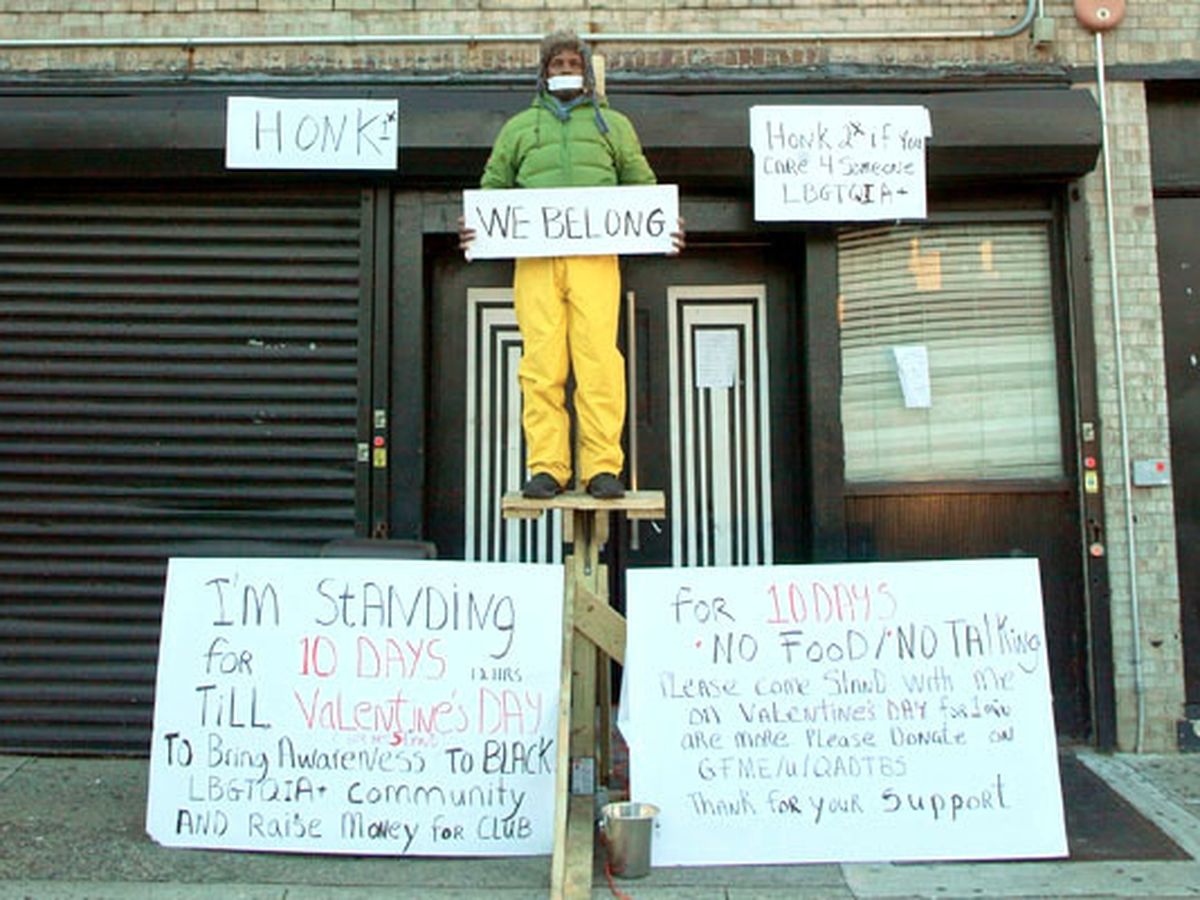 HONK 1x
HONK 2x if You
CARE 4 Someone
LBGTQIA+
WE BELONG
I'M StANDiNg
foR 10 DAYS 12HRS
TiLL ValeNtiNe's DAY
TO Bring AwareNess TO BLACK
LBGTQIA+ community
AND Raise MoNey foR CLUB
foR 10 DAYS
NO FooD/NO TAlKing
PLease come StaND with me
oN ValeNtiNe's DAY for
are more Please DoNate oN
GFME/u/QADTBS
THANK foR youR Support